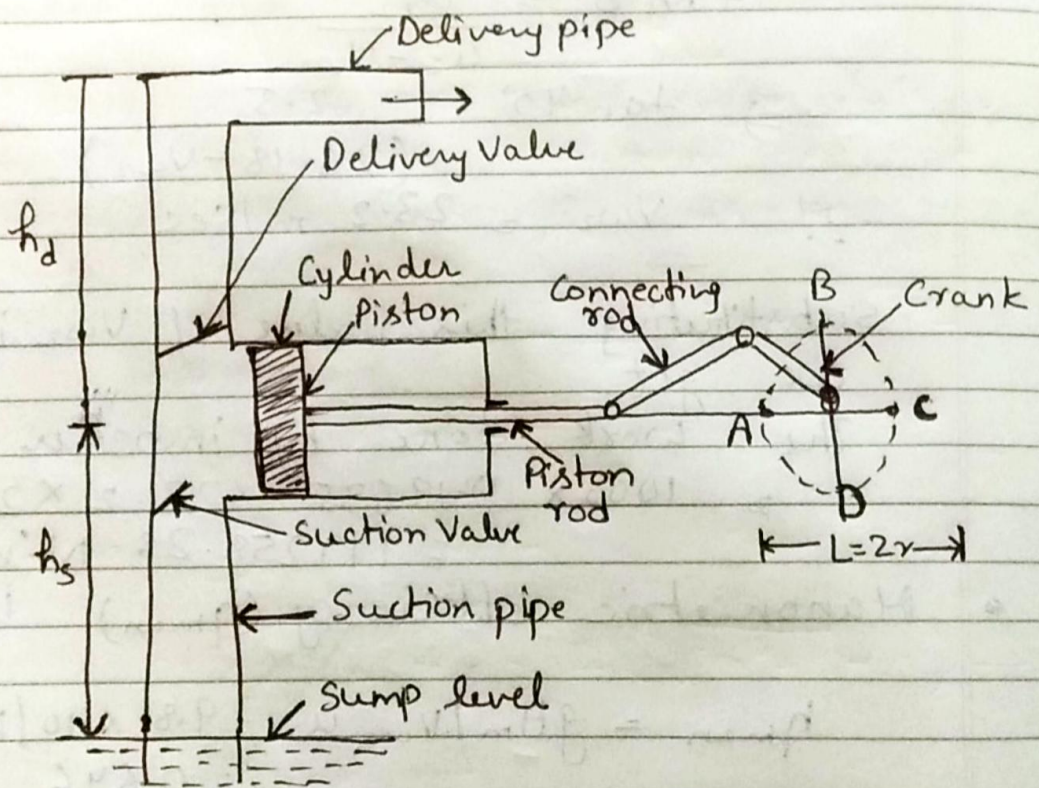 Delivery pipe
Delivery Valve
hd
Cylinder
Piston
Connecting
rod
B
Crank
A
C
Piston
rod
D
Suction Valve
L=2r
hs
Suction pipe
Sump level